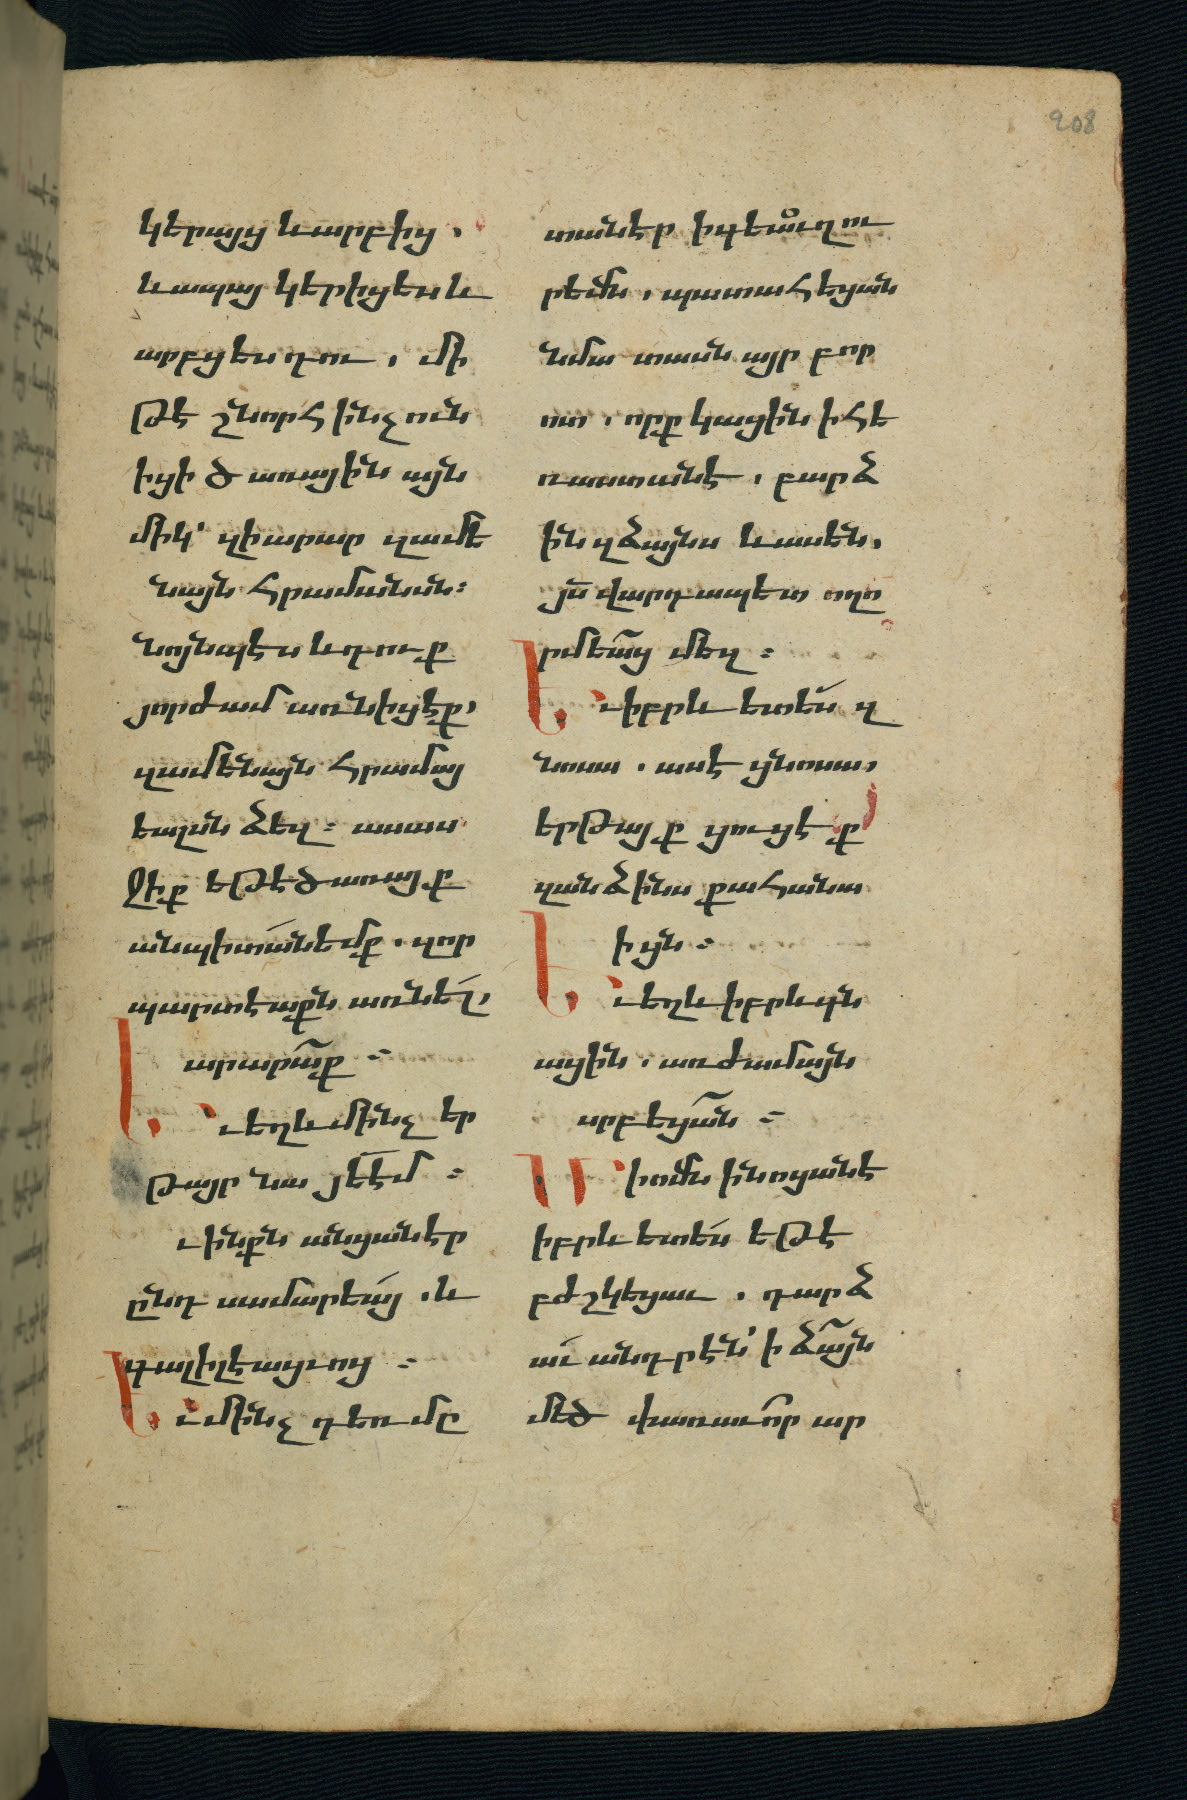 208
կերայց և արբից .
և ապա կերիցես և
արբցես դու . մի
թէ շնորհ ինչ ուն
իցի ծառային այն
միկ՝ զի արար զամե
նայն հրամանսն :
նոյնպէս և դուք
յորժամ առնիցէք,
զամենայն հրամայ
եալսն ձեզ : ասաս
ջիք եթե ծառայք
անպիտանեմք . զոր
պարտէաքն առնել,
արարաք :
Ե
ւ եղև մինչ եր
թայր նա յեէմ :
ւ ինքն անցանէր
ընդ սամարեայ . և
գալիլէացւոց :
Ե
ւ մինչ դեռ մը
տանէր ի գեաւղ ու
րեմն . պատահեցան
նմա տասն այր բոր
ոտ . որք կացին ի հե
ռաստանէ . բարձ
ին զձայնս և ասեն,
յս վարդապետ ողո
րմեաց մեզ :
Ե
ւ իբրև ետես զ
նոսա . ասէ ցնոսա,
երթայք ցուցէք
զանձինս քահանա
ից :
Ե
ւ եղև իբրև գն
ացին . առժամայն
սրբեցան :
Մ
իոմն ի նոցանէ
իբրև ետես եթէ
բժշկեցաւ . դարձ
աւ անդրէն՝ ի ձայն
մեծ փառաւոր ար